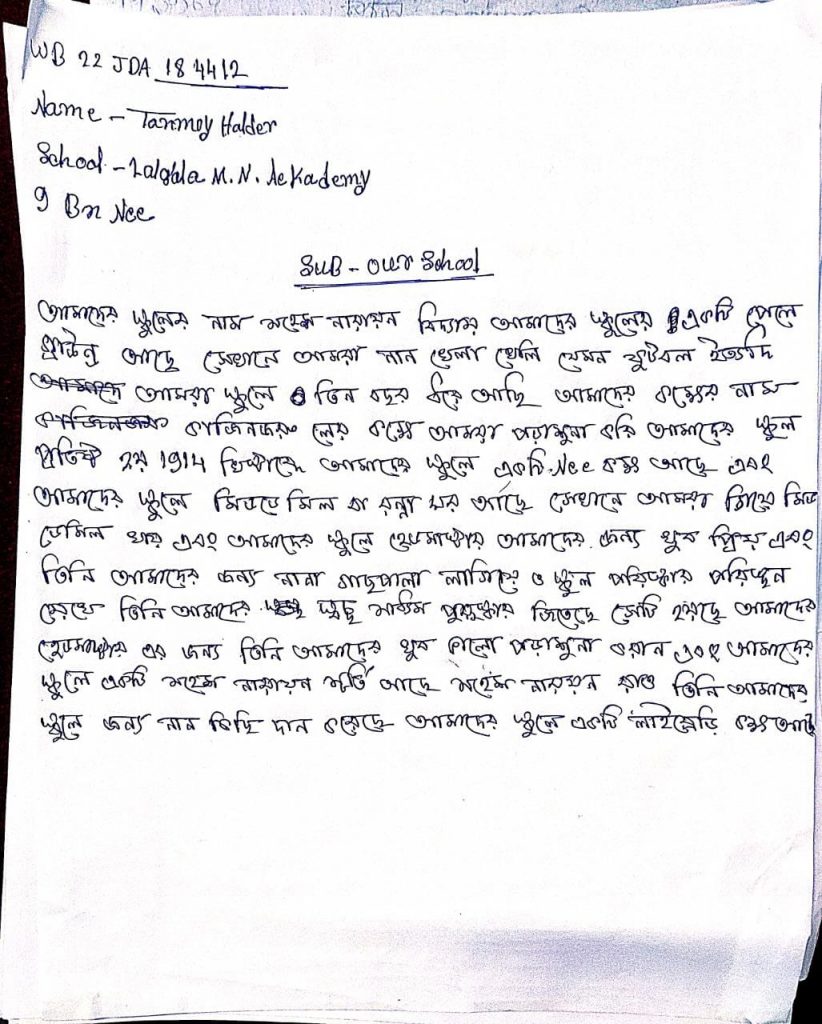 WB 22 JDA 184412
Name - Tanmoy Halder
School - Lalgola M.N. Aekademy
9 Bn Ncc
SUB - our School
আমাদের স্কুলের নাম মহেশ নারায়ন বিদ্যালয় আমাদের স্কুলের একটি পেলে
গ্রাউন্ড আছে সেখানে আমরা নান খেলা খেলি যেমন ফুটবল ইত্যাদি
আমরা স্কুলে তিন বছর ধরে আছি আমাদের রুমের নাম
কাজিনজরু লের রুমে আমরা পড়াশুনা করি আমাদের স্কুল
প্রতিষ্ঠ হয় 1914 খ্রিষ্টাব্দে আমাদের স্কুলে একটি Ncc রুম আছে এবং
আমাদের স্কুলে মিডডে মিল বা রান্না ঘর আছে সেখানে আমরা গিয়ে মিড
ডেমিল খায় এবং আমাদের স্কুলে হেডমাষ্টার আমাদের জন্য খুব প্রিয় এবং
তিনি আমাদের জন্য নানা গাছপালা লাগিয়ে ও স্কুল পরিষ্কার পরিছন
রেখে তিনি আমাদের পুরুষ্কার জিতেছে সেটি হয়ছে আমাদের
হেডমাষ্টার এর জন্য তিনি আমাদের খুব ভালো পড়াশুনা করান এবং আমাদের
স্কুলে একটি মহেশ নারায়ন মূর্তি আছে মহেশ নারায়ন রাও তিনি আমাদের
স্কুলে জন্য নান কিছি দান করেছে আমাদের স্কুলে একটি লাইব্রেড়ি রুম আছে